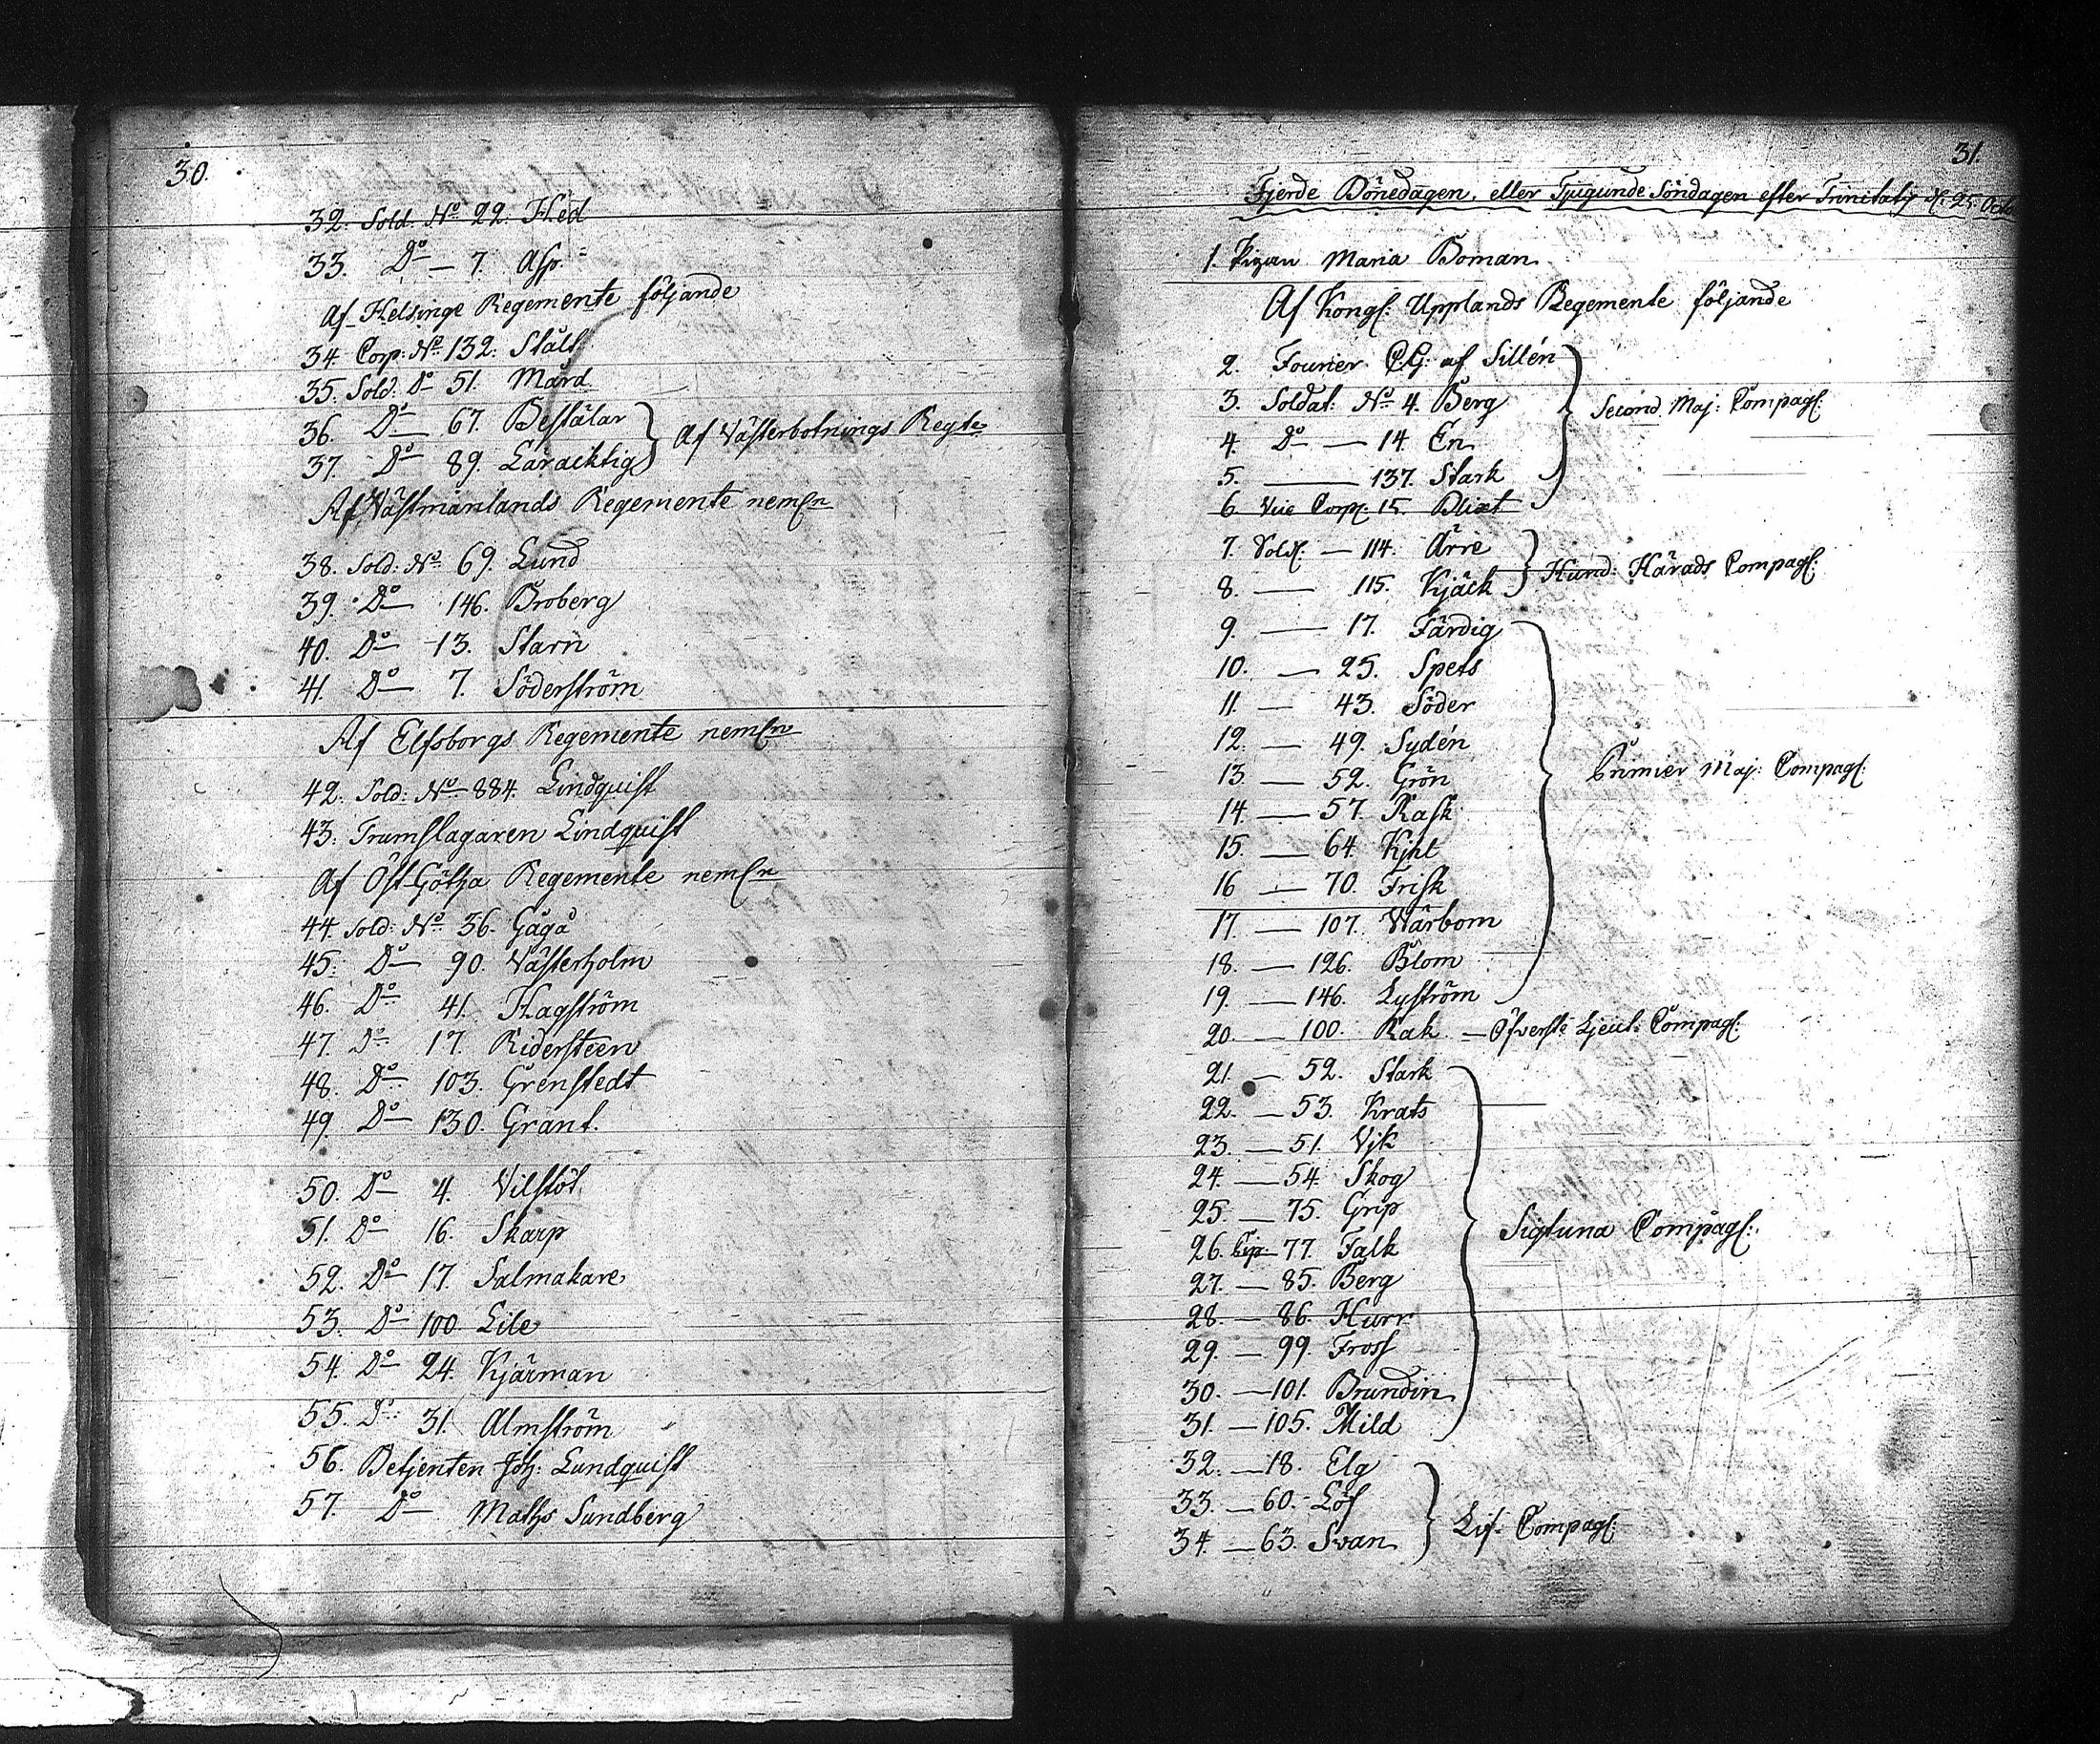 30.
32. Sold. No 22. Hed
33. Do — 7. Asp.
Af Helsinge Regemente följande
34. Corp: No 132. Stålt
35. Sold: Do 51. Mård
36. Do 67. Beställar
37. Do 89. Laracktig
Af Västerbotnings Regte
Af Västmanlands Regemente neml:n
38. Sold: No 69. Lund
39. Do 146. Broberg
40. Do 13. Starn
41. Do 7. Söderström
Af Elfsborgs Regemente neml:n
42. Sold: No 884. Lindquist
43. Trumslagaren Lindquist
Af Öst-Götha Regemente neml:n
44. Sold: No 36. Gågå
45. Do 90. Västerholm
46. Do 41. Hagström
47. Do 17. Ridersteen
48. Do 103. Grenstedt
49. Do 130. Grant.
50. Do 4. Vilstöt
51. Do 16. Skarp
52. Do 17. Salmakare
53. Do 100. Lile
54. Do 24. Kjärman
55. Do 31. Almström
56. Betjenten Joh: Lundquist
57. Do Maths Sundberg
31.
Fjerde Bönedagen, eller Tjugunde Söndagen efter Trinitatis d. 25. Octo
1. Pigan Maria Boman
Af Kongl: Upplands Regemente följande
2. Fourier C.G. af Sillén
3. Soldat: No 4. Berg
4. Do — 14. En
5. — 137. Stark
6. Vice Corpl. 15. Blixt
Second Maj: Compagl:
7. Sold. — 114. Ärre
8. — 115. Kjäck
Hund: Härads Compagl:
9. — 17. Färdig
10. — 25. Spets
11. — 43. Söder
12. — 49. Sydén
13. — 52. Grön
14. — 57. Rask
15. — 64. Kjhl
16 — 70. Frisk
17. — 107. Wårbom
18. — 126. Blom
19. — 146. Lyström
Primier Maj: Compagl:
20. — 100. Rak — Öfverste Ljeut: Compagl:
21. — 52. Stark
22. — 53. Krats
23. — 51. Vjk
24. — 54. Skog
25. — 75. Grip
26. Crp 77. Falk
27. — 85. Berg
28. — 86. Hurr
29. — 99. Fross
30. — 101. Brundin
31. — 105. Mild
Sigtuna Compagl:
32. — 18. Elg
33. — 60. Löf
34. — 63. Svan
Lif- Compagl: